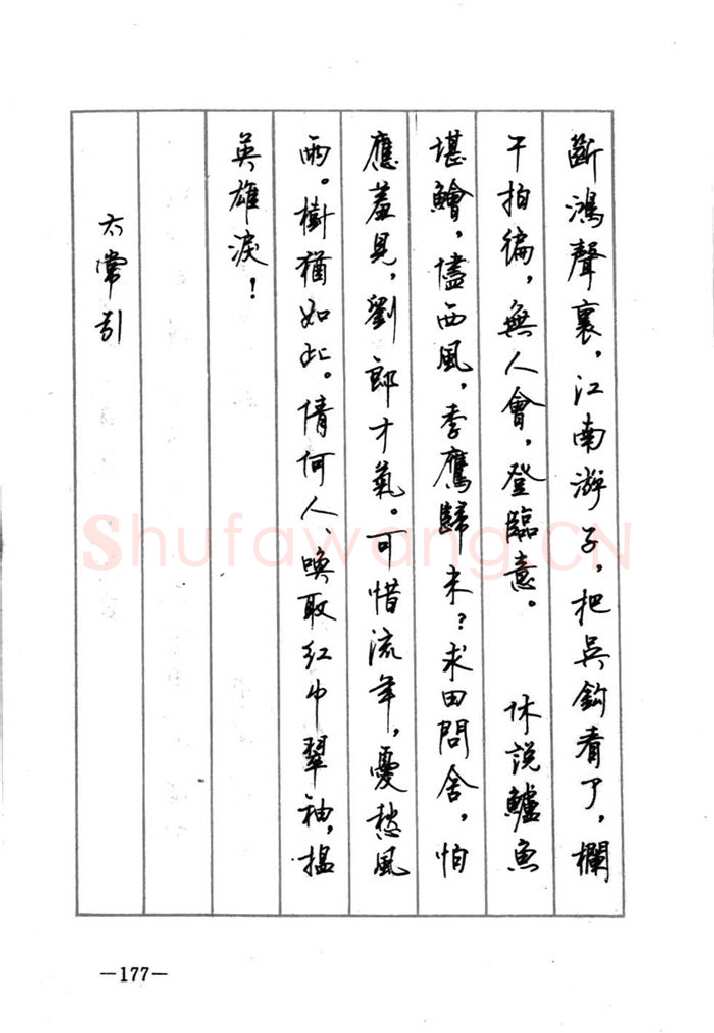 斷鴻聲裏，江南游子，把吳鈎看了，欄
干拍徧，無人會，登臨意。　　休說鱸魚
堪鱠，儘西風，季鷹歸未？求田問舍，怕
應羞見，劉郎才氣。可惜流年，憂愁風
雨。樹猶如此。倩何人、喚取紅巾翠袖，揾
英雄淚！
太常引
—177—
Shufawang.CN